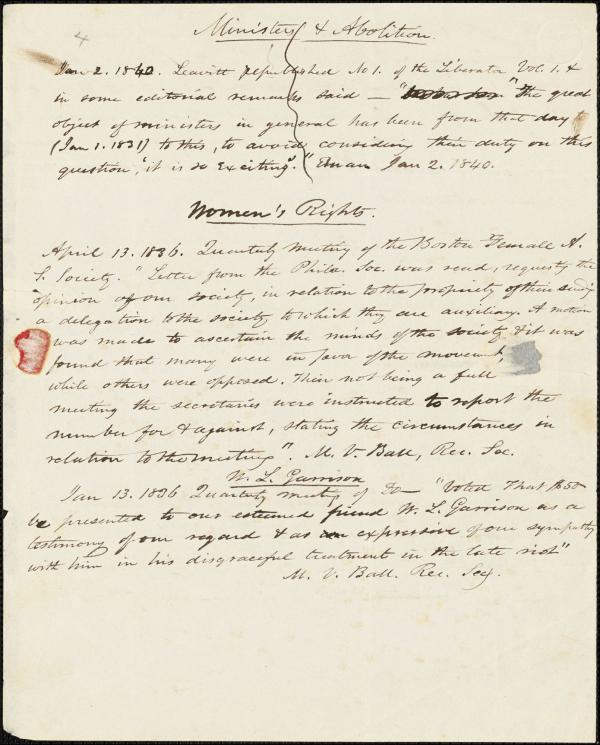 4
Ministers & Abolition.
Jan 2. 1840. Leavitt republished No 1. of the Liberator Vol. 1. &
in some editorial remarks said — " "the great
object of ministers in general has been from that day to
(Jan 1. 1831) to this, to avoid considering their duty on this
question, 'it is so exciting'." Eman Jan 2. 1840.
Women's Rights.
April 13. 1836. Quarterly Meeting of the Boston Female A.
S. Society. "Letter from the Phila. Soc. was read, requestg the
opinion of our society, in relation to the propriety of their sendg
a delegation to the society to which they are auxiliary. A motion
was made to ascertain the minds of the society & it was
found that many were in favor of the movement,
while others were opposed. Their not being a full
meeting the secretaries were instructed to report the
number for & against, stating the circumstances in
relation to the meeting". M. V. Ball, Rec. Sec.
W. L. Garrison
Jan 13. 1836 Quarterly meetig of Do — "Voted That $50
be presented to our esteemed friend W. L. Garrison as a
testimony of our regard & as an expressive of our sympathy
with him in his disgraceful treatment in the late riot"
M. V. Ball. Rec. Secy.